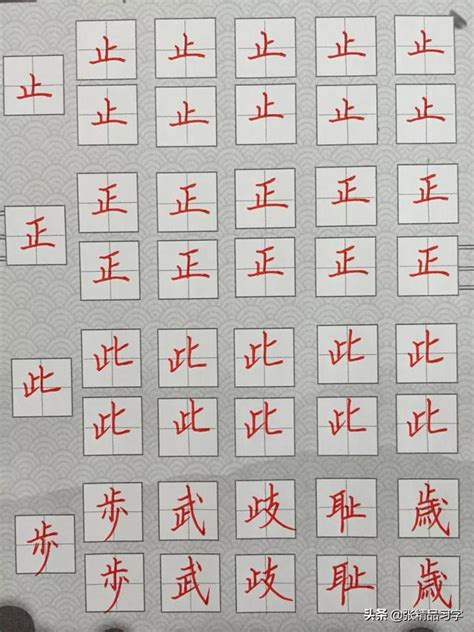 止 止 止 止 止
止
止 止 止 止 止
正 正 正 正 正
正
正 正 正 正 正
此 此 此 此 此
此
此 此 此 此 此
歩 武 歧 耻 歳
歩
歩 武 歧 耻 歳
头条 @张精品习字